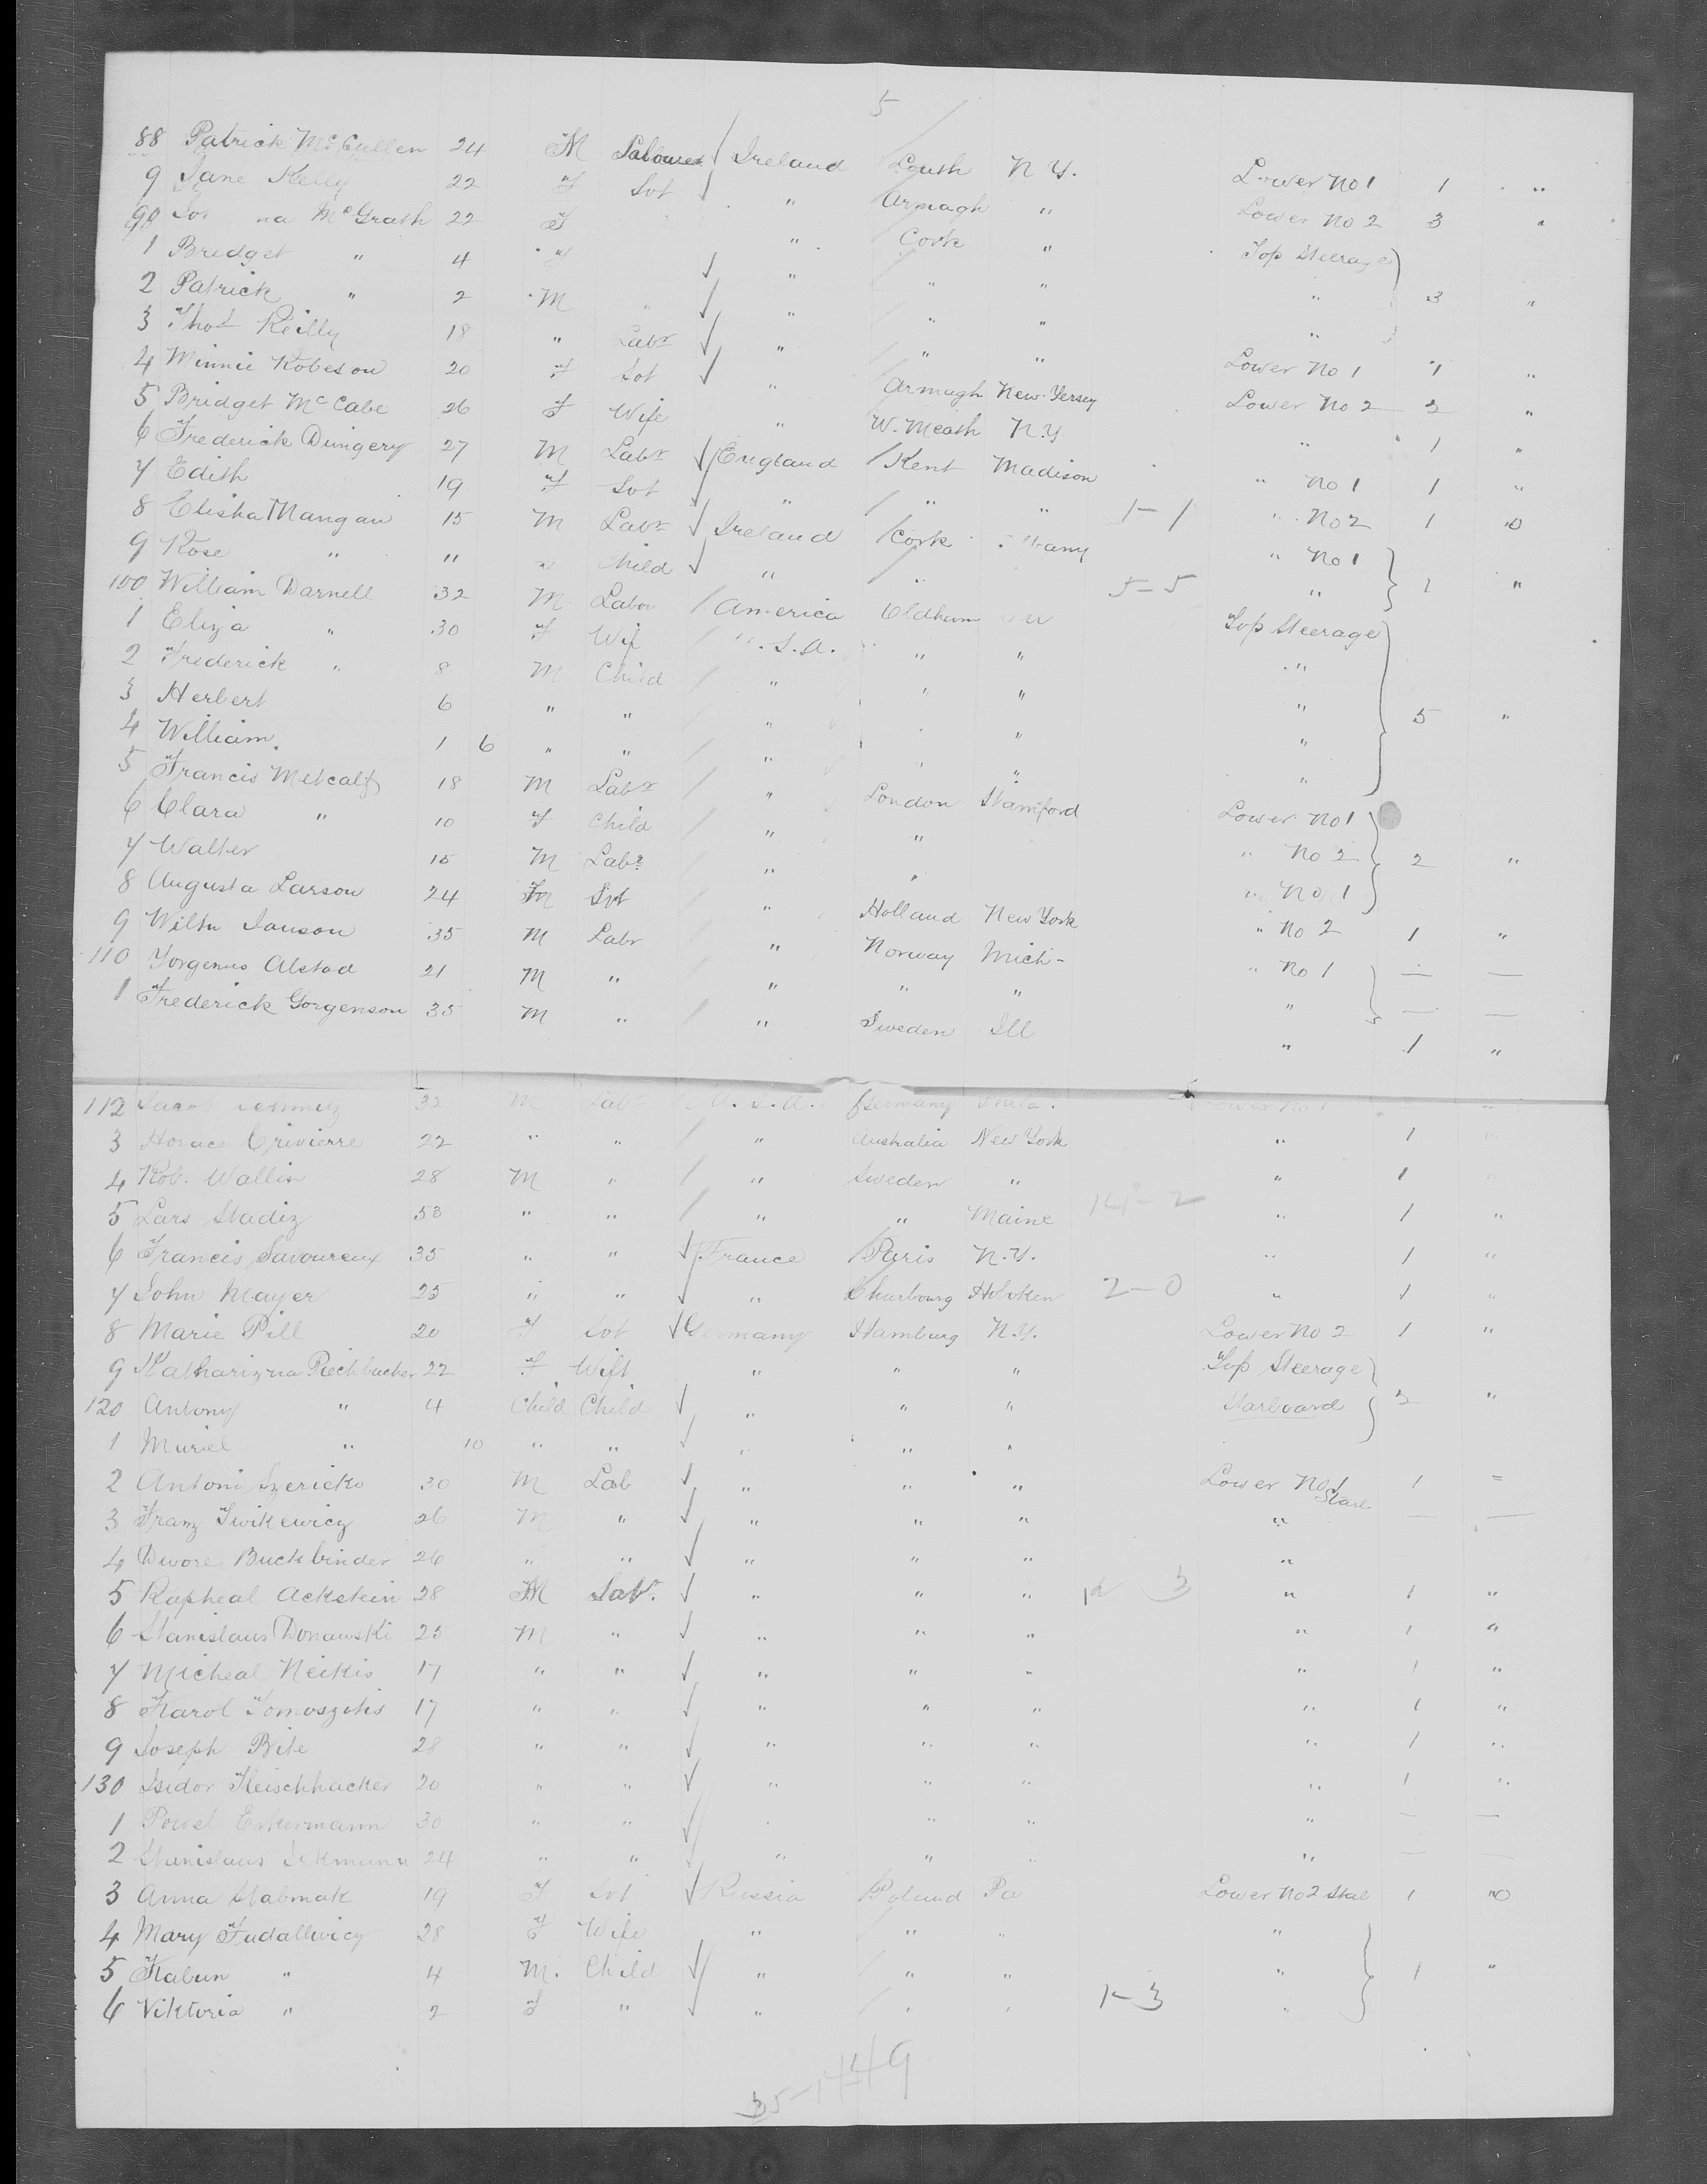 5
88 Patrick McCullen 24 M Labourer Ireland Louth N Y. Lower No 1 1 "
9 Jane Kelly 22 F Svt " Armagh " Lower No 2 3 "
90 na McGrath 22 F " Cork " Top Steerage
1 Bridget " 4 F " " " " 3 "
2 Patrick " 2 M " " " " "
3 Thos Reilly 18 " Labr " " " Lower No 1 1 "
4 Minnie Robeson 20 F Svt " Armagh New Jersey Lower No 2 3 "
5 Bridget McCabe 26 F Wife " W. Meath N.Y. " 1 "
6 Frederick Dungery 27 M Labr England Kent Madison " No 1 1 "
7 Edith 19 F Svt " " " 1-1 " No 2 1 "0
8 Elisha Mangan 15 M Labr Ireland Cork " No 1
9 Rose " 11 " Child " " 5-5 " 1 "
100 William Darnell 32 M Labor America Oldham Top Steerage
1 Eliza " 30 F Wif .S.A. " " "
2 Frederick " 8 M Child " " " "
3 Herbert 6 " " " " " " 5 "
4 William 1 6 " " " " " "
5 Francis Metcalf 18 M Labr " London Stamford Lower No 1
6 Clara " 10 F Child " " " No 2 2 "
7 Walter 15 M Labr " " " No 1
8 Augusta Larson 24 Svt " Holland New York " No 2 1 "
9 Wilhn Janson 35 M Labr " Norway Mich- " No 1 — —
110 Yorgenus Alstad 21 M " " " " " — —
1 Frederick Gorgenson 35 M " " Sweden Ill " 1 "
112 32 M Labr U.S.A. Germany Phila. Lower No 1 "
3 Horace Crivierre 22 " " " Australia New York " 1 "
4 Rob. Wallin 28 M " " Sweden " " 1 "
5 Lars Stadiz 53 " " " " Maine 14-2 " 1 "
6 Francis Savoureux 35 " " France Paris N.Y. " 1 "
7 John Mayer 25 " " " Churbourg Hoboken 2-0 " 1 "
8 Marie Pill 20 F Svt Germany Hamburg N.Y. Lower No 2 1 "
9 Katharizna Piechbacher 22 F Wift " " " Top Steerage
120 Antony " 4 Child Child " " " Starboard 3 "
1 Muriel " 10 " " " " "
2 Antoni Szericko 30 M Lab " " " Lower No 1 Star 1 "
3 Franz Iwikewicz 26 M " " " " " — —
4 Dwore Buckbinder 26 " " " " " "
5 Rapheal Ackstein 28 M Labr. " " " 12 3 " 1 "
6 Stanislaus Donawski 25 M " " " " " 1 "
7 Micheal Neikis 17 " " " " " " 1 "
8 Karol Tomoszitis 17 " " " " " " 1 "
9 Joseph Bite 28 " " " " " " 1 "
130 Isidor Fleischhacker 20 " " " " " " 1 "
1 Powel Enkermann 30 " " " " " " — —
2 Stanislaus 24 " " " " " " — —
3 Anna Stabmak 19 F Svt Russia Poland Pa Lower No 2 Star 1 "0
4 Mary Fudallwicz 28 F Wife " " " "
5 Kabun " 4 M. Child " " " " 1 "
6 Viktoria " 2 F " " " " 1-3 "